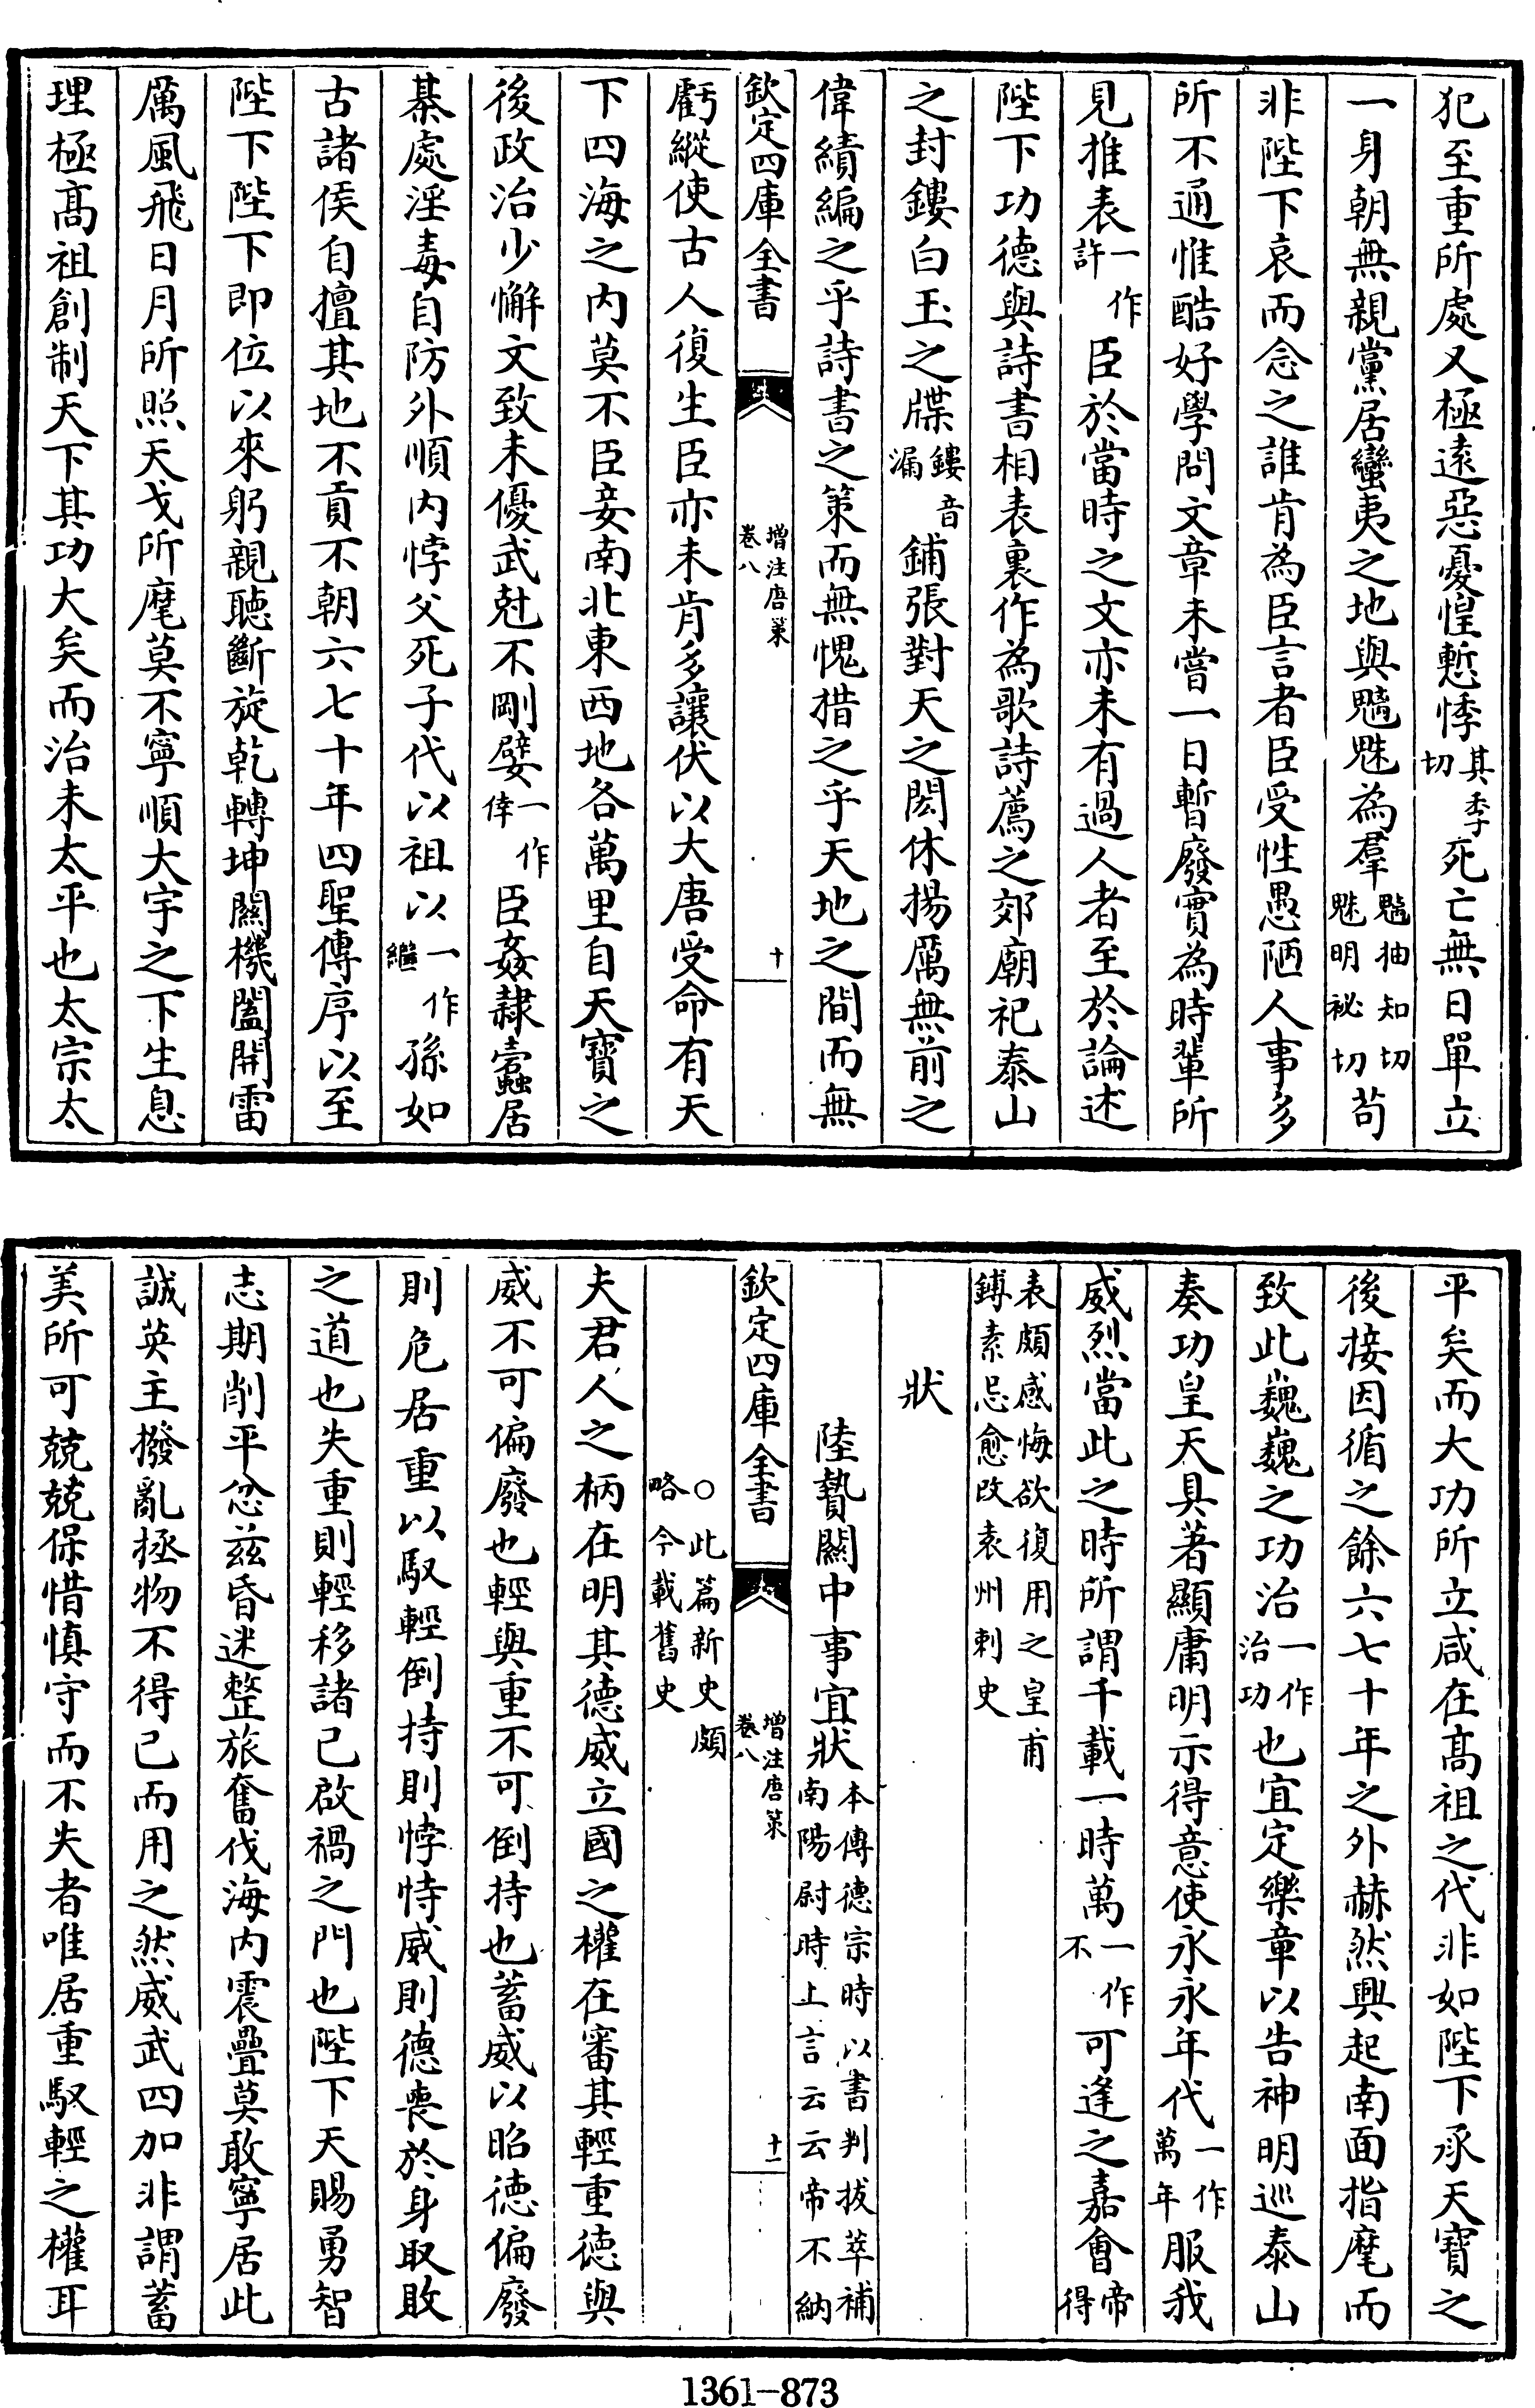 犯至重所處又極遠惡憂惶慙悸其季切死亡無日單立
一身朝無親黨居蠻夷之地與魑魅為羣魑抽知切魅明祕切苟
非陛下哀而念之誰肯為臣言者臣受性愚陋人事多
所不通惟酷好學問文章未嘗一日暫廢實為時輩所
見推表一作許臣於當時之文亦未有過人者至於論述
陛下功德與詩書相表裏作為歌詩薦之郊廟祀泰山
之封鏤白玉之牒鏤音漏鋪張對天之閎休揚厲無前之
偉績編之乎詩書之策而無愧措之乎天地之間而無
欽定四庫全書 增注唐策卷八 十
虧縱使古人復生臣亦未肯多讓伏以大唐受命有天
下四海之內莫不臣妾南北東西地各萬里自天寶之
後政治少懈文致未優武尅不剛嬖一作倖臣姦隷蠧居
棊處淫毒自防外順内悖父死子代以祖以一作繼孫如
古諸侯自擅其地不貢不朝六七十年四聖傳序以至
陛下陛下即位以來躬親聽斷旋乾轉坤關機闔開雷
厲風飛日月所照天戈所麾莫不寧順大宇之下生息
理極髙祖創制天下其功大矣而治未太平也太宗太
平矣而大功所立咸在髙祖之代非如陛下承天寶之
後接因循之餘六七十年之外赫然興起南面指麾而
致此巍巍之功治一作治功也宜定樂章以告神明巡泰山
奏功皇天具著顯庸明示得意使永永年代一作萬年服我
威烈當此之時所謂千載一時萬一作不可逢之嘉會帝得
表頗感悔欲復用之皇甫鎛素忌愈改袁州刺史
狀
陸贄關中事宜狀本傳德宗時以書判拔萃補南陽尉時上言云云帝不納
欽定四庫全書 增注唐策卷八 十一
○此篇新史頗略今載舊史
夫君人之柄在明其德威立國之權在審其輕重德與
威不可偏廢也輕與重不可倒持也蓄威以昭徳偏廢
則危居重以馭輕倒持則悖恃威則德喪於身取敗
之道也失重則輕移諸己啟禍之門也陛下天賜勇智
志期削平忿兹昏迷整旅奮伐海内震疊莫敢寧居此
誠英主撥亂拯物不得已而用之然威武四加非謂蓄
美所可兢兢保惜慎守而不失者唯居重馭輕之權耳
1361-873